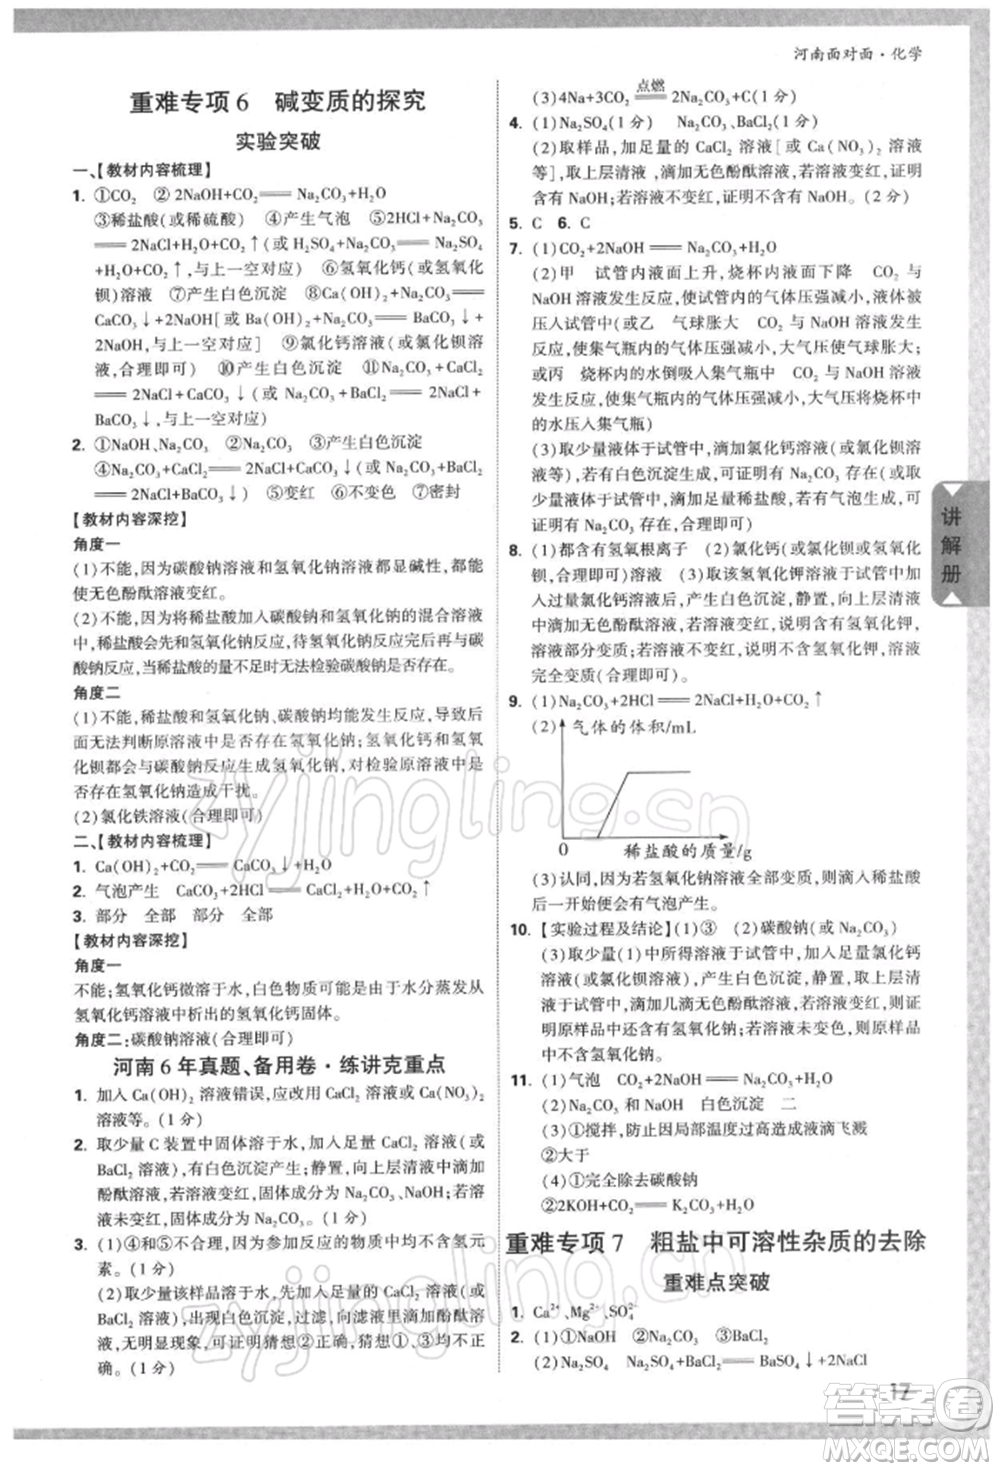 河南面对面·化学
重难专项6 碱变质的探究
实验突破
一、【教材内容梳理】
1. ①CO₂ ②2NaOH+CO₂══Na₂CO₃+H₂O
③稀盐酸(或稀硫酸) ④产生气泡 ⑤2HCl+Na₂CO₃
══2NaCl+H₂O+CO₂↑(或 H₂SO₄+Na₂CO₃══Na₂SO₄
+H₂O+CO₂↑,与上一空对应) ⑥氢氧化钙(或氢氧化
钡)溶液 ⑦产生白色沉淀 ⑧Ca(OH)₂+Na₂CO₃══
CaCO₃↓+2NaOH[或 Ba(OH)₂+Na₂CO₃══BaCO₃↓
+2NaOH,与上一空对应] ⑨氯化钙溶液(或氯化钡溶
液,合理即可) ⑩产生白色沉淀 ⑪Na₂CO₃+CaCl₂
══2NaCl+CaCO₃↓(或 Na₂CO₃+BaCl₂══2NaCl+
BaCO₃↓,与上一空对应)
2. ①NaOH、Na₂CO₃ ②Na₂CO₃ ③产生白色沉淀
④Na₂CO₃+CaCl₂══2NaCl+CaCO₃↓(或 Na₂CO₃+
BaCl₂══2NaCl+BaCO₃↓) ⑤变红 ⑥不变色 ⑦密封
【教材内容深挖】
角度一
(1)不能,因为碳酸钠溶液和氢氧化钠溶液都显碱性,都能
使无色酚酞溶液变红。
(2)不能,将稀盐酸加入碳酸钠和氢氧化钠的混合溶液
中,稀盐酸会先和氢氧化钠反应,待氢氧化钠反应完才和碳
酸钠反应,当稀盐酸的量不足时无法检验碳酸钠是否存在。
角度二
(1)不能,稀盐酸和氢氧化钠、碳酸钠均能发生反应,导致后
面无法判断原溶液中是否存在氢氧化钠;氢氧化钙和氢氧
化钡会与碳酸钠反应生成氢氧化钠,对检验原溶液中是否
存在氢氧化钠造成干扰。
(2)氯化铁溶液(合理即可)
二、【教材内容梳理】
1. Ca(OH)₂+CO₂══CaCO₃↓+H₂O
2. 气泡产生 CaCO₃+2HCl══CaCl₂+H₂O+CO₂↑
3. 部分 全部 部分 全部
【教材内容深挖】
角度一
不能;氢氧化钙微溶于水,白色物质可能是由于水分蒸发
氢氧化钙溶液中析出的氢氧化钙固体。
角度二:碳酸钠溶液(合理即可)
河南6年真题、备用卷·练讲克重点
1. 加入 Ca(OH)₂ 溶液错误,应改为加入 CaCl₂ 或 Ca(NO₃)₂
溶液等。(1分)
2. 取少量 C 装置中固体溶于水,加入足量 CaCl₂ 溶液(或
BaCl₂ 溶液),有白色沉淀产生;静置,向上层清液中滴加
酚酞溶液,若溶液变红,固体成分为 Na₂CO₃ 和 NaOH;若溶
液未变红,则固体成分为 Na₂CO₃。(1分)
3. (1)④和⑤不合理,因为反应物中没有氢元
素。(1分)
(2)取少量该样品溶于水,加入足量的 CaCl₂ 溶液(或 BaCl₂
溶液),出现白色沉淀,过滤,向滤液中滴加酚酞溶
液,无明显现象,可证明猜想②正确,猜想①、③均不正
确。(1分)
(3)4Na+3CO₂ 点燃══ 2Na₂CO₃+C(1分)
4. (1)Na₂SO₄(1分) Na₂CO₃、BaCl₂(1分)
(2)取样品,加足量的 CaCl₂ 溶液[或 Ca(NO₃)₂ 溶液
等],取上层清液,滴加无色酚酞溶液,若溶液变红,证明
含有 NaOH;若溶液不变红,证明不含有 NaOH。(2分)
5. C 6. C
7. (1)CO₂+2NaOH══Na₂CO₃+H₂O
(2)甲 试管内液面上升,烧杯内液面下降 CO₂ 与
NaOH 溶液发生反应,使试管内的气体压强减小,溶液被
压入试管内(或乙 气球胀大 CO₂ 与 NaOH 溶液发生
反应,使集气瓶内的气体压强减小,大气压使气球胀大;
或丙 烧杯内的水倒吸入集气瓶中 CO₂ 与 NaOH 溶液
发生反应,使集气瓶内的气体压强减小,大气压将烧杯中
的水压入集气瓶)
(3)取少量液体于试管中,滴加氯化钙溶液(或氯化钡溶
液等),若有白色沉淀生成,可证明有 Na₂CO₃ 存在(或取
少量液体于试管中,滴加足量稀盐酸,若有气泡生成,可
证明有 Na₂CO₃ 存在,合理即可)
8. (1)都含有氢氧根离子 (2)氯化钙(或氯化钡或氢氧化
钡,合理即可) (3)取该氢氧化钾溶液于试管中
加入过量氯化钙溶液,产生白色沉淀,静置,取上层清液
滴加无色酚酞溶液,若溶液变红,则还有氢氧化钾,
溶液部分变质;若溶液不变红,则没有氢氧化钾,溶液
完全变质(合理即可)
9. (1)Na₂CO₃+2HCl══2NaCl+H₂O+CO₂↑
(2)
气体的体积/mL
0 稀盐酸的质量/g
(3)认同,因为若氢氧化钠溶液全部变质,则滴入稀盐酸
后一开始便会有气泡产生。
10. 【实验过程及结论】(1)③ (2)碳酸钠(或 Na₂CO₃)
(3)取少量(1)中所得溶液于试管中,加入足量氯化钙
溶液(或氯化钡溶液),产生白色沉淀,静置,取上层清
液于试管中,滴加几滴无色酚酞溶液,溶液变红,则
证明原样品中还有氢氧化钠;若溶液未变色,则不含
氢氧化钠
11. (1)气泡 CO₂+2NaOH══Na₂CO₃+H₂O
(2)Na₂CO₃ 和 NaOH 白色沉淀 二
(3)①搅拌,防止因局部温度过高造成液滴飞溅
②大于
(4)①完全除去碳酸钠
②2KOH+CO₂══K₂CO₃+H₂O
重难专项7 粗盐中可溶性杂质的去除
重难点突破
1. Ca²⁺、Mg²⁺、SO₄²⁻
2. (1)①NaOH ②Na₂CO₃ ③BaCl₂
(2)Na₂SO₄+BaCl₂══BaSO₄↓+2NaCl
讲解册
17
zyjingling.cn
zyjingling.cn
答案圈
MXQE.COM